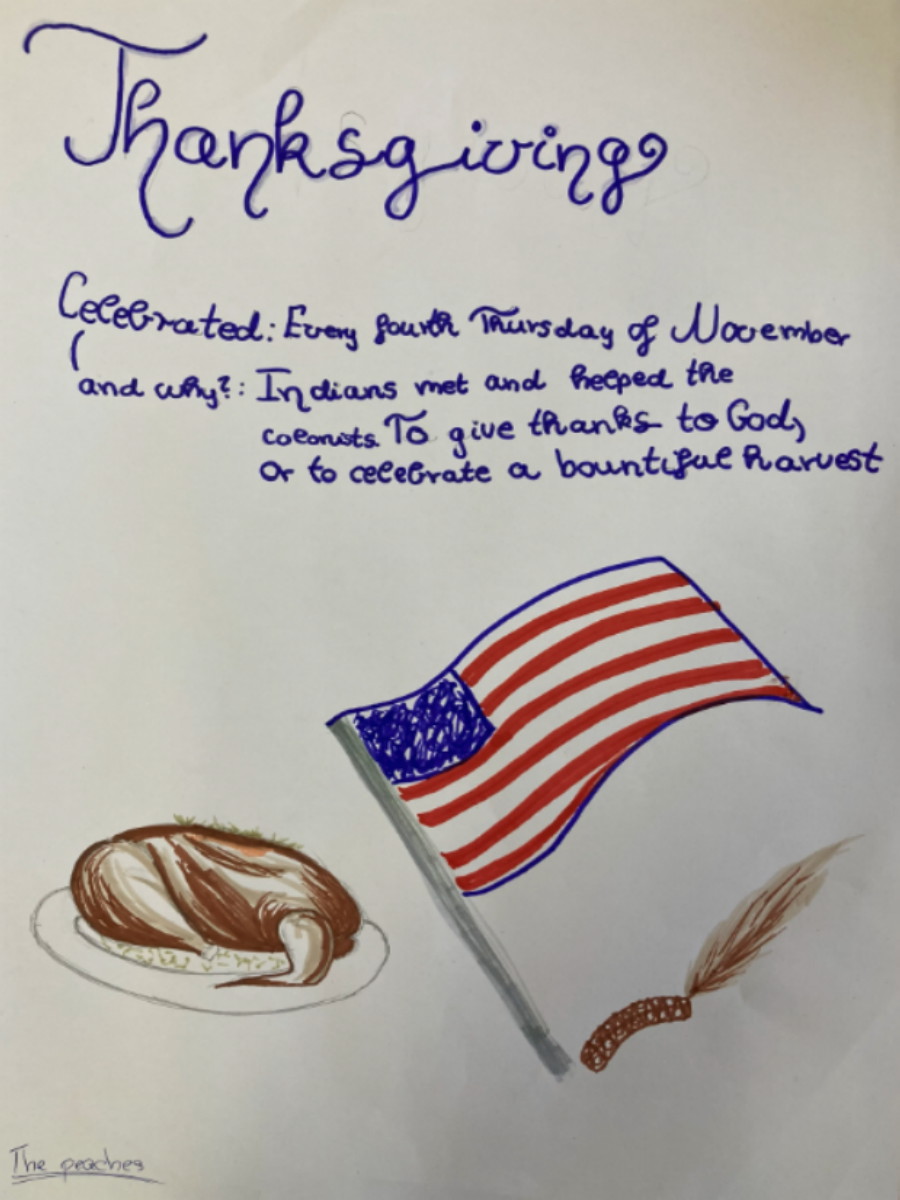 Thanksgiving
Celebrated: Every fourth Thursday of November
and why?: Indians met and helped the
colonists. To give thanks to God,
Or to celebrate a bountiful harvest
The peaches